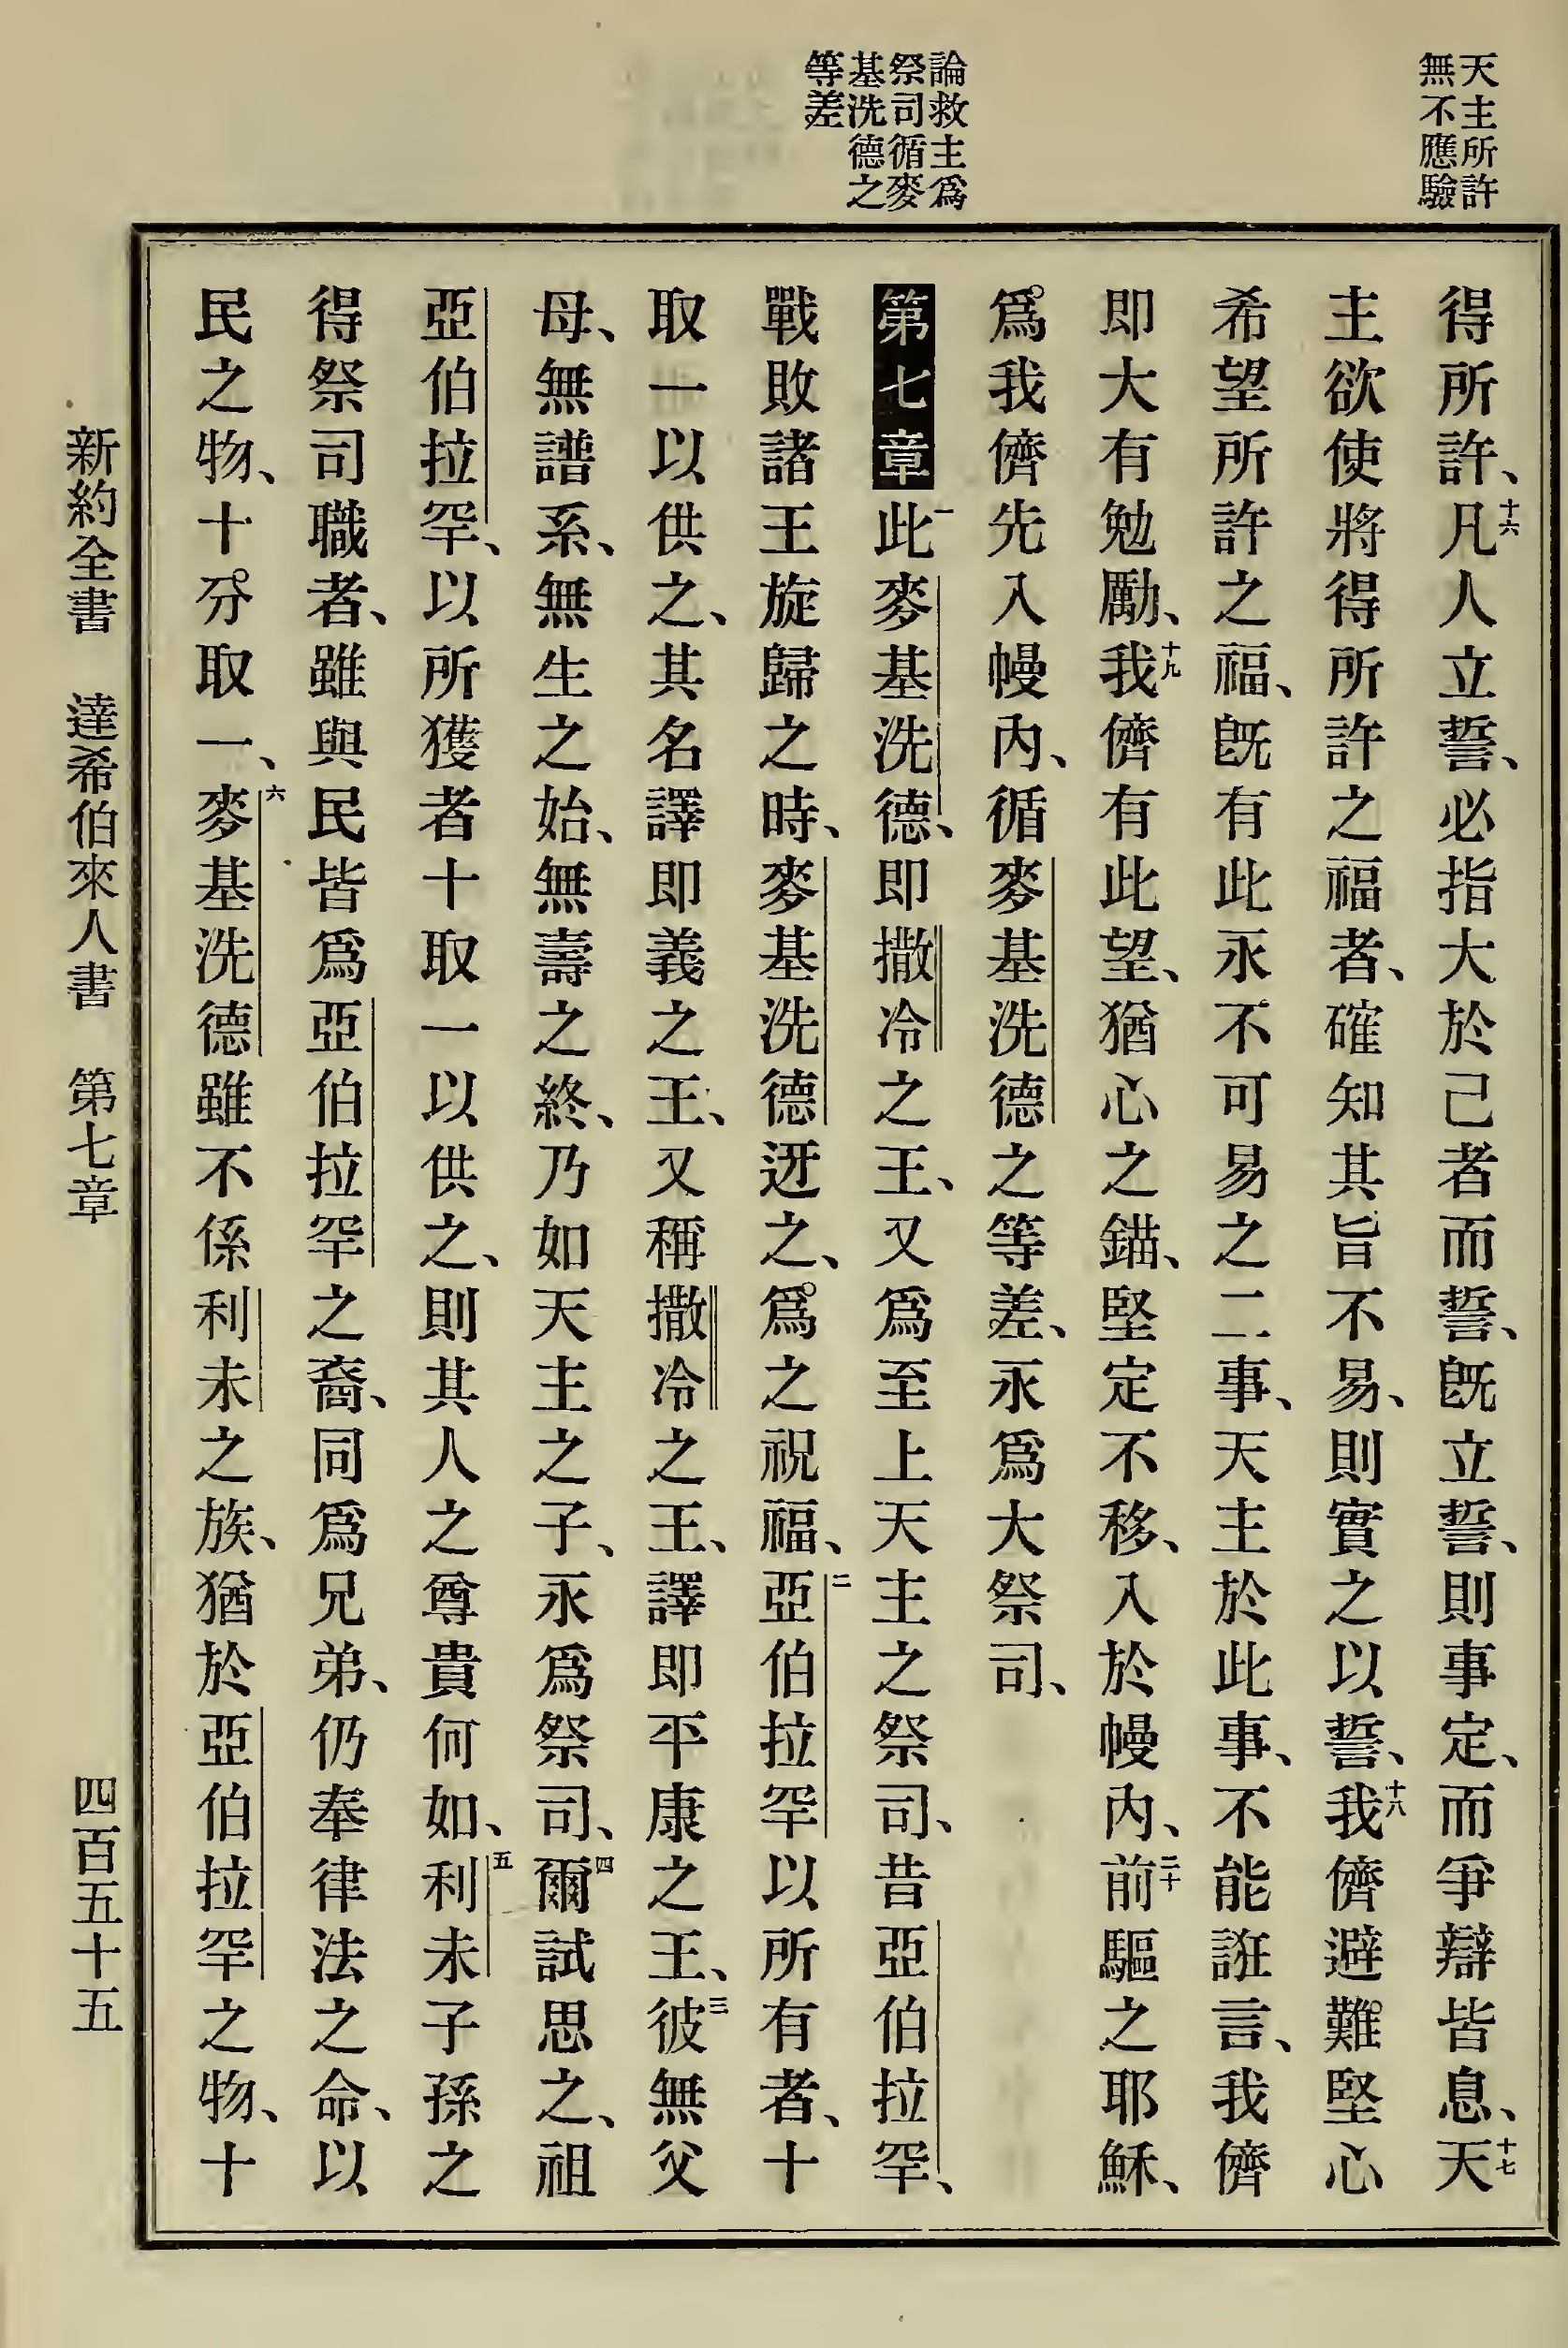 天主所許
無不應驗
論救主爲
祭司循麥
基洗德之
等差
得所許、十六凡人立誓、必指大於己者而誓、旣立誓、則事定、而爭辯皆息、十七天
主欲使將得所許之福者、確知其旨不易、則實之以誓、十八我儕避難堅心
希望所許之福、旣有此永不可易之二事、天主於此事、不能誑言、我儕
即大有勉勵、十九我儕有此望、猶心之錨、堅定不移、入於幔內、二十前驅之耶穌、
爲我儕先入幔內、循麥基洗德之等差、永爲大祭司、
第七章一此麥基洗德、即撒冷之王、又爲至上天主之祭司、昔亞伯拉罕、
戰敗諸王旋歸之時、麥基洗德迓之、爲之祝福、二亞伯拉罕以所有者、十
取一以供之、其名譯即義之王、又稱撒冷之王、譯即平康之王、三彼無父
母、無譜系、無生之始、無壽之終、乃如天主之子、永爲祭司、四爾試思之、祖
亞伯拉罕、以所獲者十取一以供之、則其人之尊貴何如、五利未子孫之
得祭司職者、雖與民皆爲亞伯拉罕之裔、同爲兄弟、仍奉律法之命、以
民之物、十分取一、六麥基洗德雖不係利未之族、猶於亞伯拉罕之物、十
新約全書 達希伯來人書 第七章 四百五十五